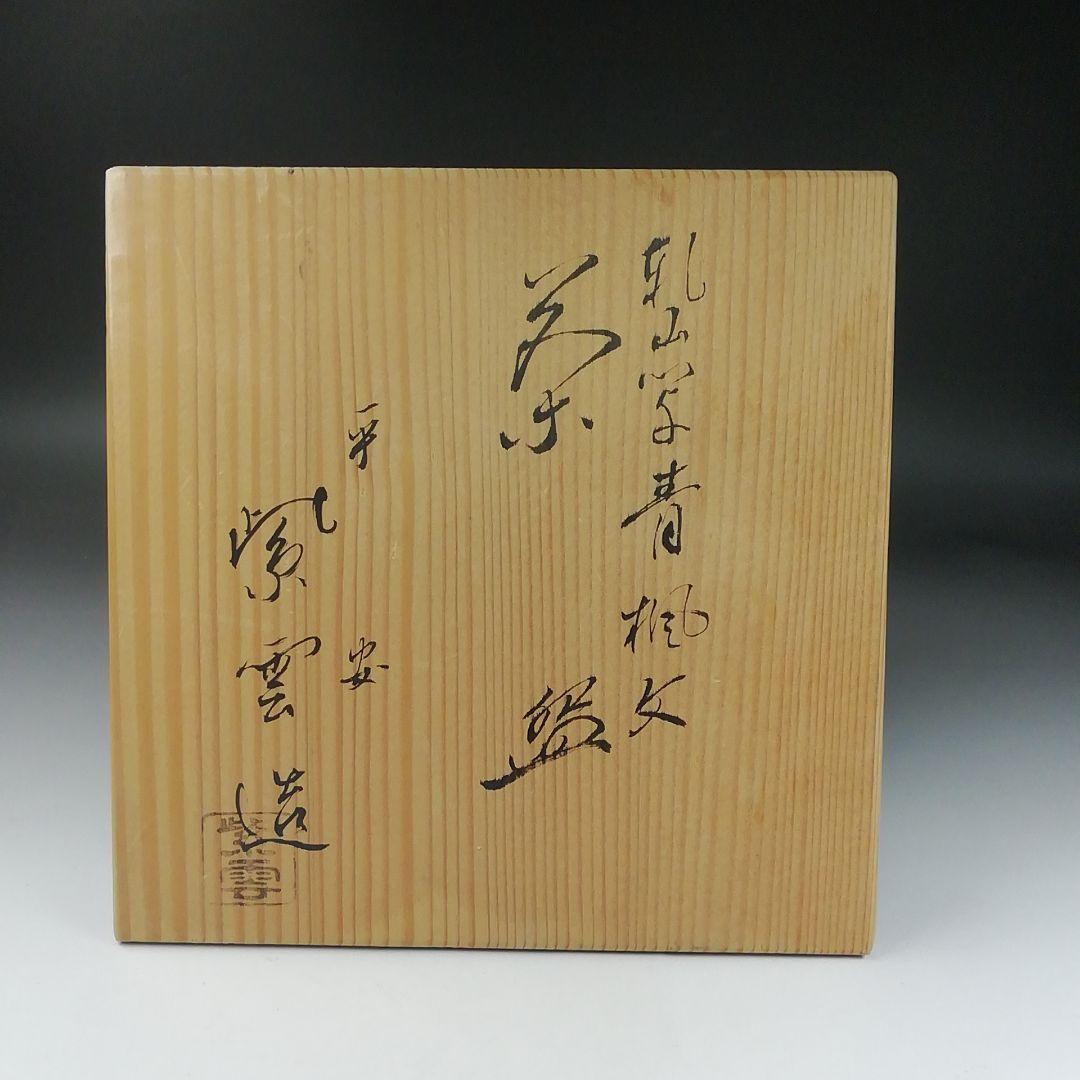 乾山写青楓文
茶盌
平安
紫雲造
紫雲